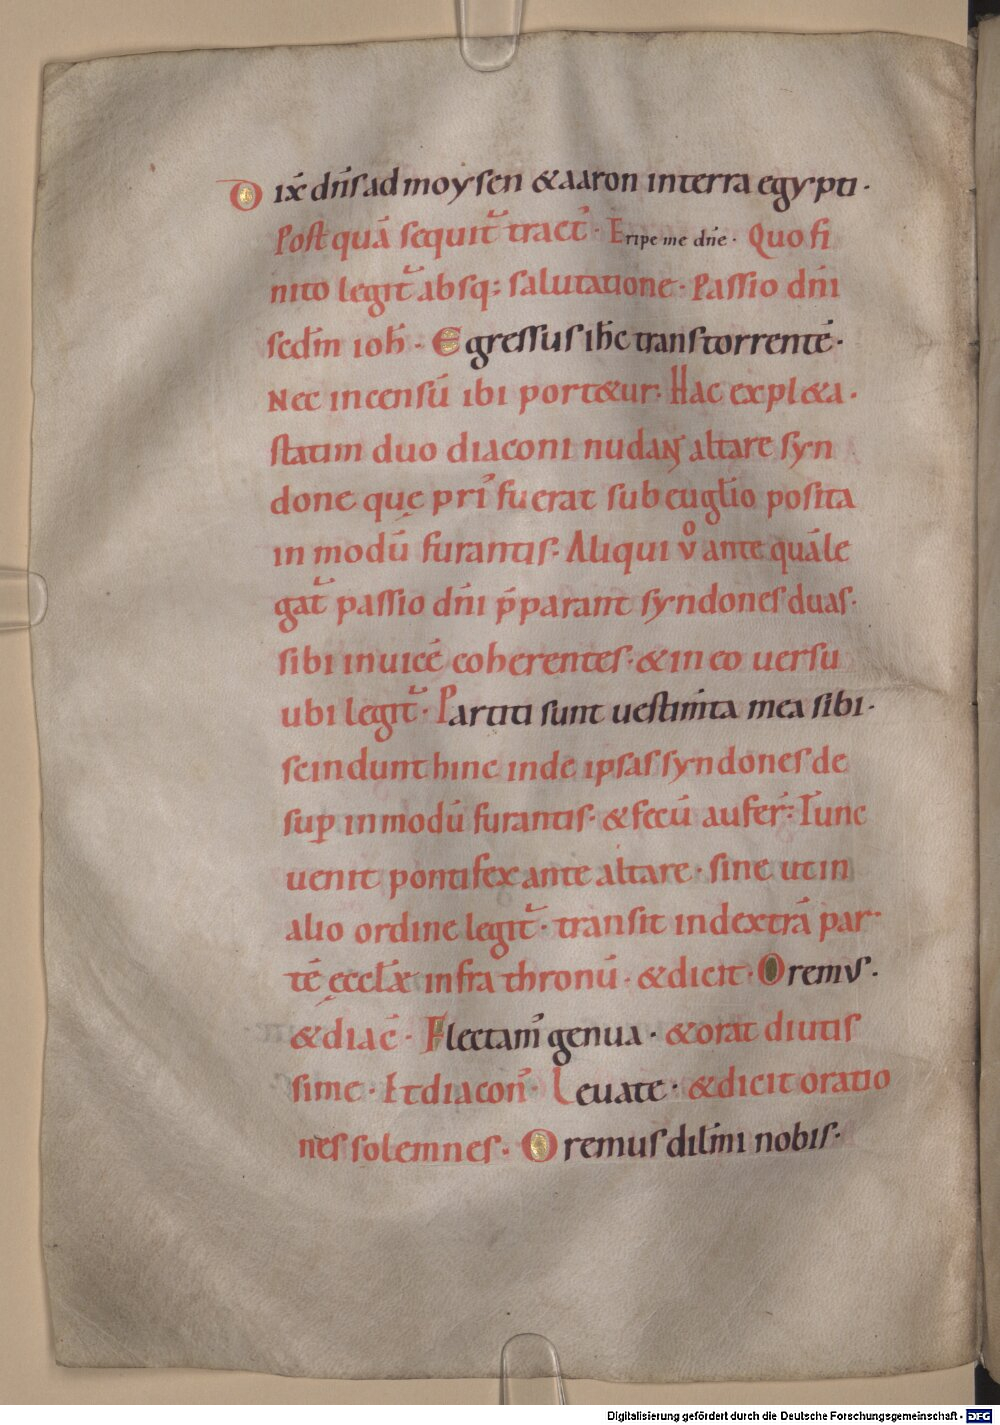 Dix̄ dn̄s ad moysen & aaron in terra egypti·
Post quā sequit̄ tract̄· Eripe me dn̄e· Quo fi
nito legit̄ absq; salutatione· Passio dn̄i
sed̄m ioh̄· Egressus ih̄c trans torrentē·
Nec incensū ibi port&ur· Hac expl&a·
statim duo diaconi nudan̄ altare syn
done que pri᾽ fuerat sub euglīo posita
in modū furantis· Aliqui v̊ ante quā le
gat̄ passio dn̄i p̄parant syndones duas·
sibi inuicē coherentes· & in eo uersu
ubi legit̄· Partiti sunt uestim̄ta mea sibi·
scindunt hinc inde ipsas syndones de
sup̱ in modū furantis· & secū aufer̄· Tunc
uenit pontifex ante altare· sine ut in
alio ordine legit̄· transit in dextrā par·
tē ęccłę infra thronū· & dicit· Oremus·
& diac̄· Flectam᾽ genua· & orat diutis
sime· Et diacon᾽ Leuate· & dicit oratio
nes solemnes· Oremus dil̄mi nobis·
Digitalisierung gefördert durch die Deutsche Forschungsgemeinschaft - DFG